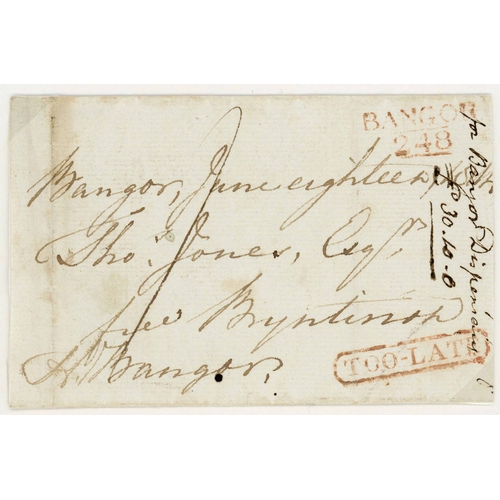 BANGOR
248
Bangor, June eighteen, 1814
Tho.s Jones, Esq.r
free Bryntirion
H. Bangor.
TOO-LATE
for Bangor Dispensary
£30.10.0